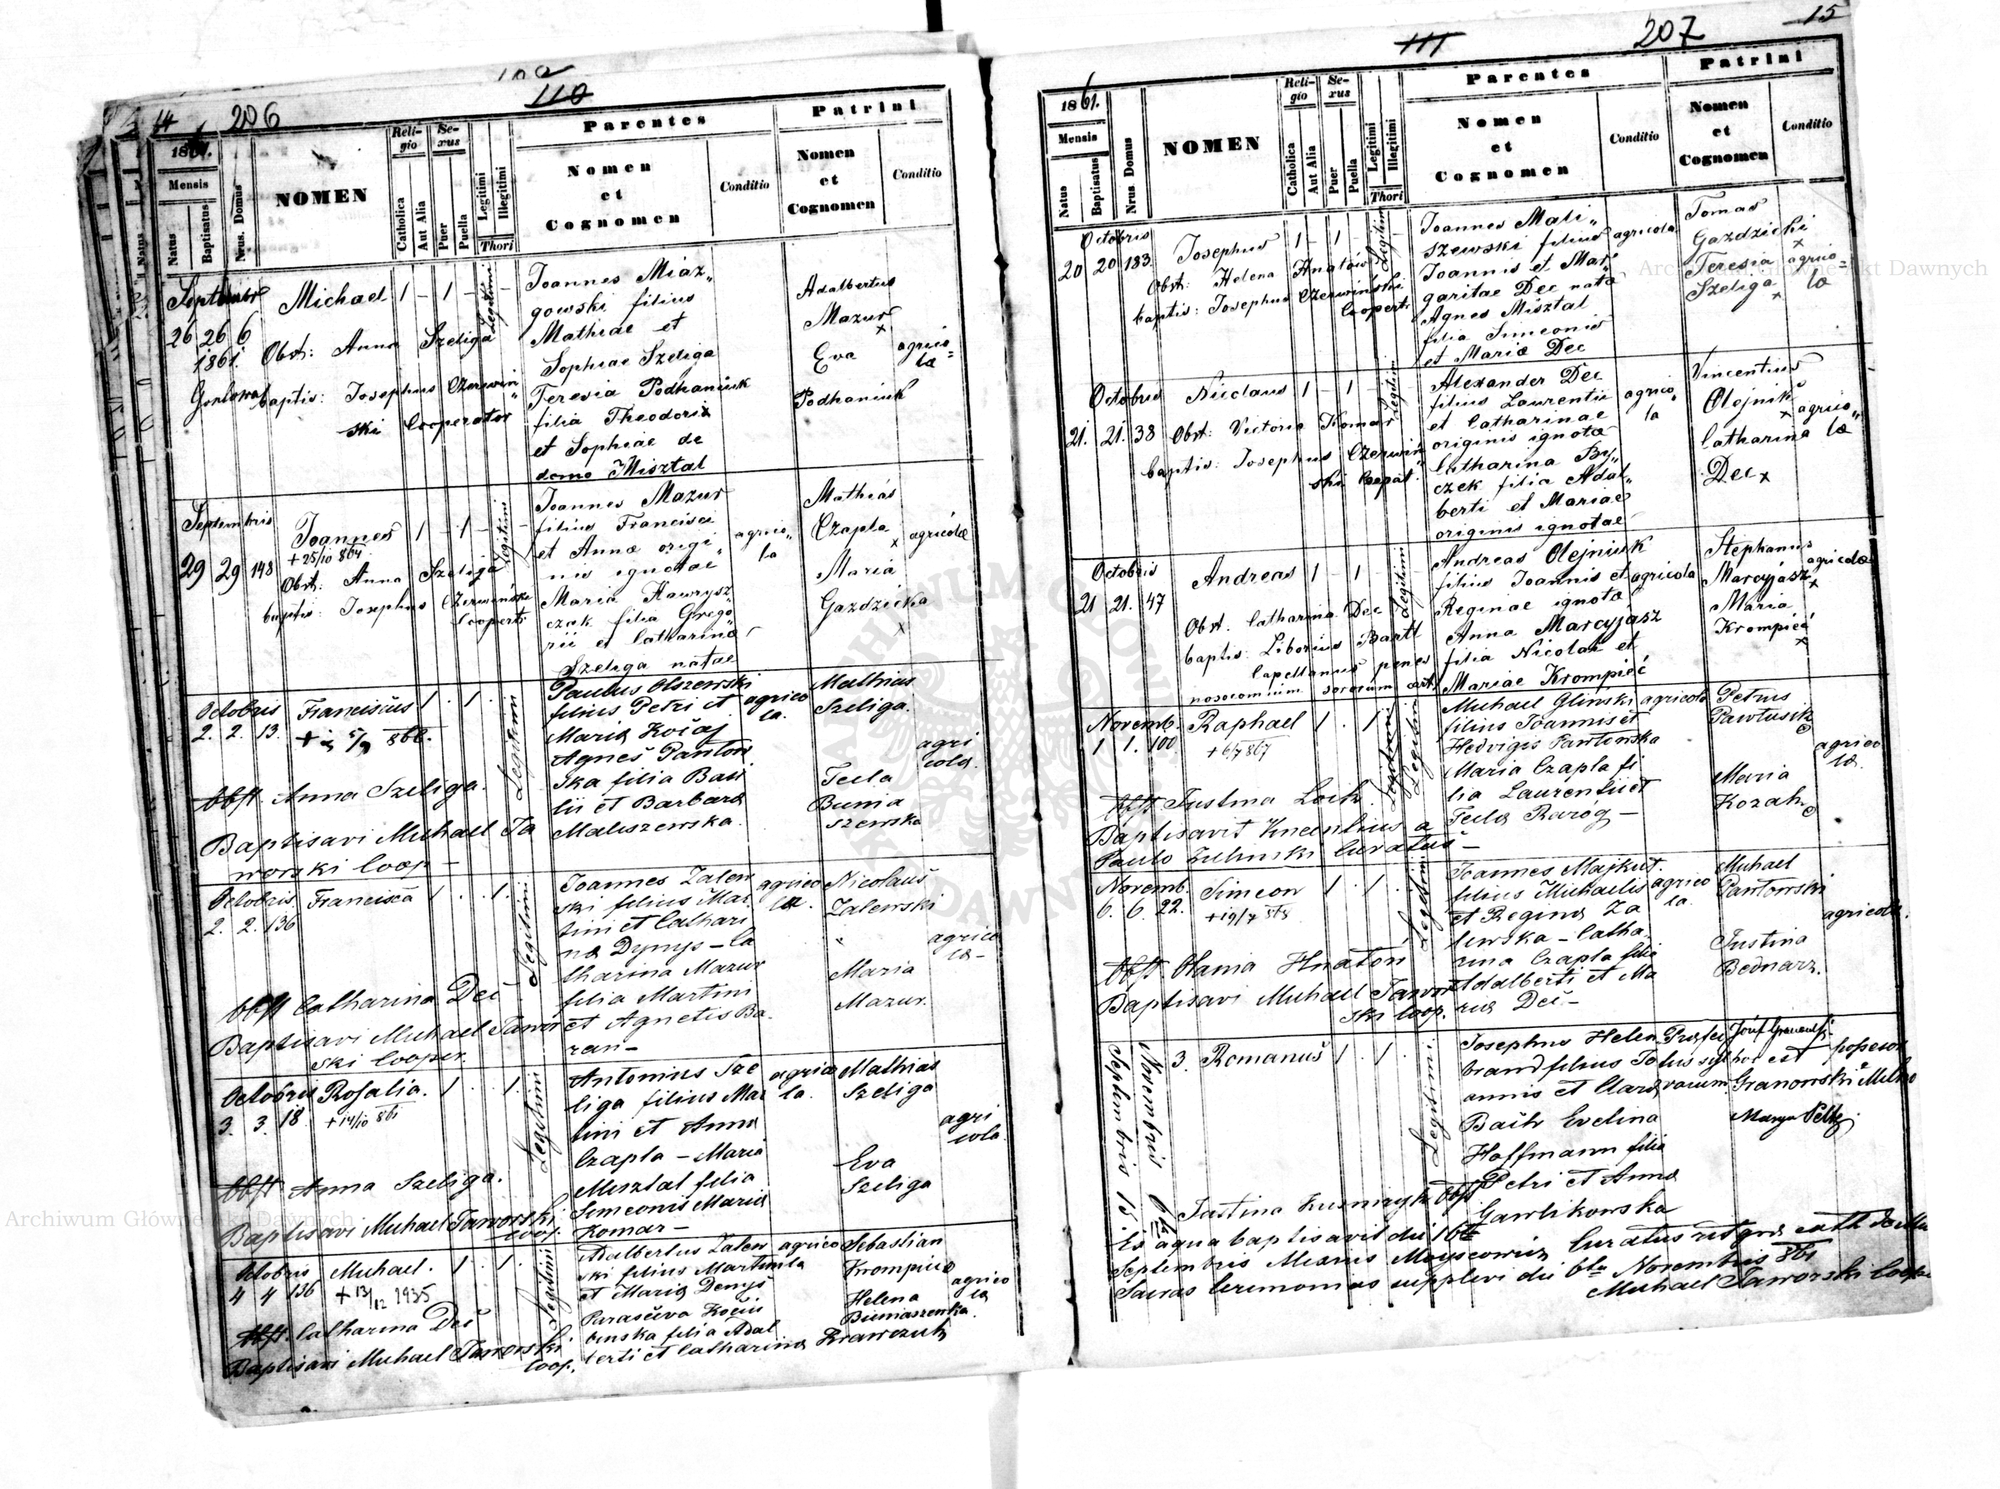 14 206 110
1861.
Mensis
Natus
Baptisatus
Nrus. Domus
NOMEN
Religio
Catholica
Aut Alia
Sexus
Puer
Puella
Legitimi
Illegitimi
Thori
Parentes
Nomen
et
Cognomen
Conditio
Patrini
Nomen
et
Cognomen
Conditio
Septembr
26 26 6
1861
Michael 1 - 1 - Legitimi
Obst: Anna Szeliga
baptis: Josephus Czerwiń„
ski Cooperator
Joannes Miaz„
gowski filius
Mathiae et
Sophiae Szeliga
Teresia Podhaniuk
filia Theodori
et Sophiae de
domo Misztal
Adalbertus
Mazur
x
Eva
Podhaniuk
agrico=
lae
Septembris
29 29 148
Joannes 1 - 1 - Legitimi
+ 25/10 864
Obst: Anna Szeliga
baptis: Josephus Czerwiński
Cooperat:
Joannes Mazur
filius Francisci
et Annae origi„
nis ignotae
Maria Hawrysz„
czak filia Grego„
rii et Catharinae
Szeliga natae
agrico„
la
Mathias
Czapla
x
Maria
Gazdzicka
x
agricolae
Octobris
2. 2. 13.
Franciscus 1 . 1 . Legitimi
Obst Anna Szeliga.
Baptisavi Michael Ja
worski Coop –
Paulus Olszewski
filius Petri et
Maria Kociaj
Agnes Pantow
ska filia Basi
lii et Barbara
Maliszewska.
agrico
la.
Mathias
Szeliga.
Tecla
Bunia
szewska
agri
cola.
Octobris
2. 2. 136
Francisca 1 . 1. Legitimi
Obst Catharina Dec
Baptisavi Michael Jawor
ski Cooper.
Joannes Zalew
ski filius Mar
tini et Cathari
na Dynys – Ca
tharina Mazur
filia Martini
et Agnetis Ba.
ran –
agrico
la.
Nicolaus
Zalewski
Maria
Mazur.
agrico
la –
Octobris
3. 3. 18.
Rosalia. 1 . 1. Legitimi
+ 14/10 861
Obst Anna Szeliga.
Baptisavi Michael Jaworski
Coop.
Antonius Sze
liga filius Mar
tini et Anna
Czapla – Maria
Misztal filia
Simeonis Maria
Komar –
agrico
la.
Mathias
Szeliga
Eva
Szeliga
agri
cola.
Octobris
4 4 136
Michael. 1 . 1. Legitimi
+ 13/12 1935
Obst. Catharina Dec
Baptisavi Michael Jaworski
Coop.
Adalbertus Zalew
ski filius Martini
et Maria Denys
Parasceva Kociu
binska filia Adal
berti et Catharina Krawczuk
agrico
la
Sebastian
Krompiec
Helena
Buniaszewka.
agrico
la
111 207 15
1861.
Mensis
Natus
Baptisatus
Nrus. Domus
NOMEN
Religio
Catholica
Aut Alia
Sexus
Puer
Puella
Legitimi
Illegitimi
Thori
Parentes
Nomen
et
Cognomen
Conditio
Patrini
Nomen
et
Cognomen
Conditio
Octobris
20 20 183.
Josephus 1 - 1 - Legitim
Obst: Helena Hnatów
baptis: Josephus Czerwiński
Cooperat:
Joannes Mali„
szewski filius
Joannis et Mar„
garitae Dec nata
Agnes Misztal
filia Simeonis
et Mariae Dec
agricola
Tomas
Gazdzicki
x
Teresia
Szeliga
x
agrico=
lae
Octobris
21. 21. 38
Nicolaus 1 - 1 - Legitim
Obst: Victoria Komar
baptis: Josephus Czerwiń
ski Coopat:
Alexander Dec
filius Laurentii
et Catharinae
originis ignotae
Catharina By„
czek filia Adal„
berti et Mariae
originis ignotae
agrico„
la
Vincentius
Olejnik
x
Catharina
Dec x
agrico„
lae
Octobris
21 21. 47
Andreas 1 - 1 - Legitimi
Obst. Catharina Dec
baptis: Liborius Bartl
Capellanus penes
nosocomium sororum
Andreas Olejniuk
filius Joannis et
Reginae ignotae
Anna Marcyjasz
filia Nicolai et
Mariae Krompieć
agricola
Stephanus
Marcyjasz
x
Maria
Krompieć
x
agricolae
Novemb.
1 1. 100.
Raphael 1 . 1 . Legitimi
+ 6/7 867
Obst Justina Loik.
Baptisavit Vincentius a
Paulo Zielinski Curatus –
Michael Glinski
filius Joannis et
Hedvigis Pawlowska
Maria Czapla fi
lia Laurentii et
Tecla Raróg –
agricola
Petrus
Pawlusik
Maria
Kozak
agrico
la.
Novemb.
6. 6. 22.
Simeon 1 . 1 . Legitimi
Obst Hania Hnatów
Baptisavi Michael Jawor
ski Coop.
Joannes Majkut.
filius Michaelis
et Regina Za
lewska – Catha
rina Czapla filia
Adalberti et Ma
ria Dec –
agrico
la.
Michael
Pantowski
Justina
Bednarz.
agricola.
Septembris 15.
Novembris 6ta
3. Romanus 1 . 1 . Legitimi.
Justina Kusmirzyk Obst
Josephus Helen
brand filius Jo
annis et Clara
Bach Evelina
Hoffmann filia
Petri et Anna
Gawlikowska
Józef Granowski
hoc est
Granowski
Marya Peltz
Ex aqua baptisavit die 16te
Septembris Mexnis Moyseowicz Curatus rit gra cath
Sacras Ceremonias supplevi die 6ta Novembris 861
Michael Jaworski Coop
Archiwum Główne Akt Dawnych
Archiwum Główne Akt Dawnych
ARCHIWUM GŁÓWNE AKT DAWNYCH